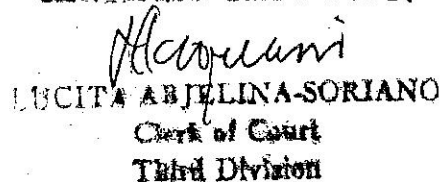 LUCITA ABJELINA-SORIANO
Clerk of Court
Third Division